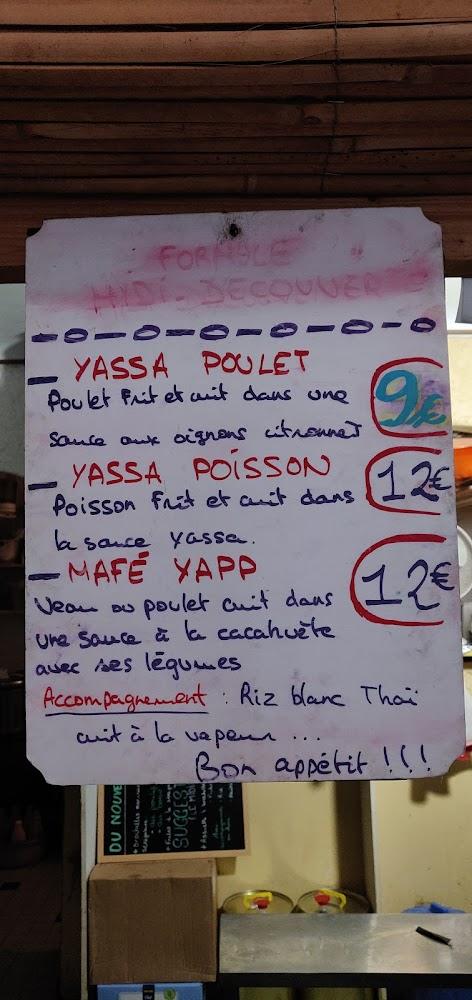 FORMULE
MIDI-DECOUVERTE
- YASSA POULET
Poulet Frit et cuit dans une
sauce aux oignons citronneT
9€
- YASSA POISSON
Poisson Frit et cuit dans
la sauce yassa.
12€
- MAFÉ YAPP
Veau ou poulet cuit dans
une sauce à la cacahuète
avec ses légumes
12€
Accompagnement : Riz blanc Thaï
cuit à la vapeur ...
Bon appétit !!!
DU NOUVE
SUGGES